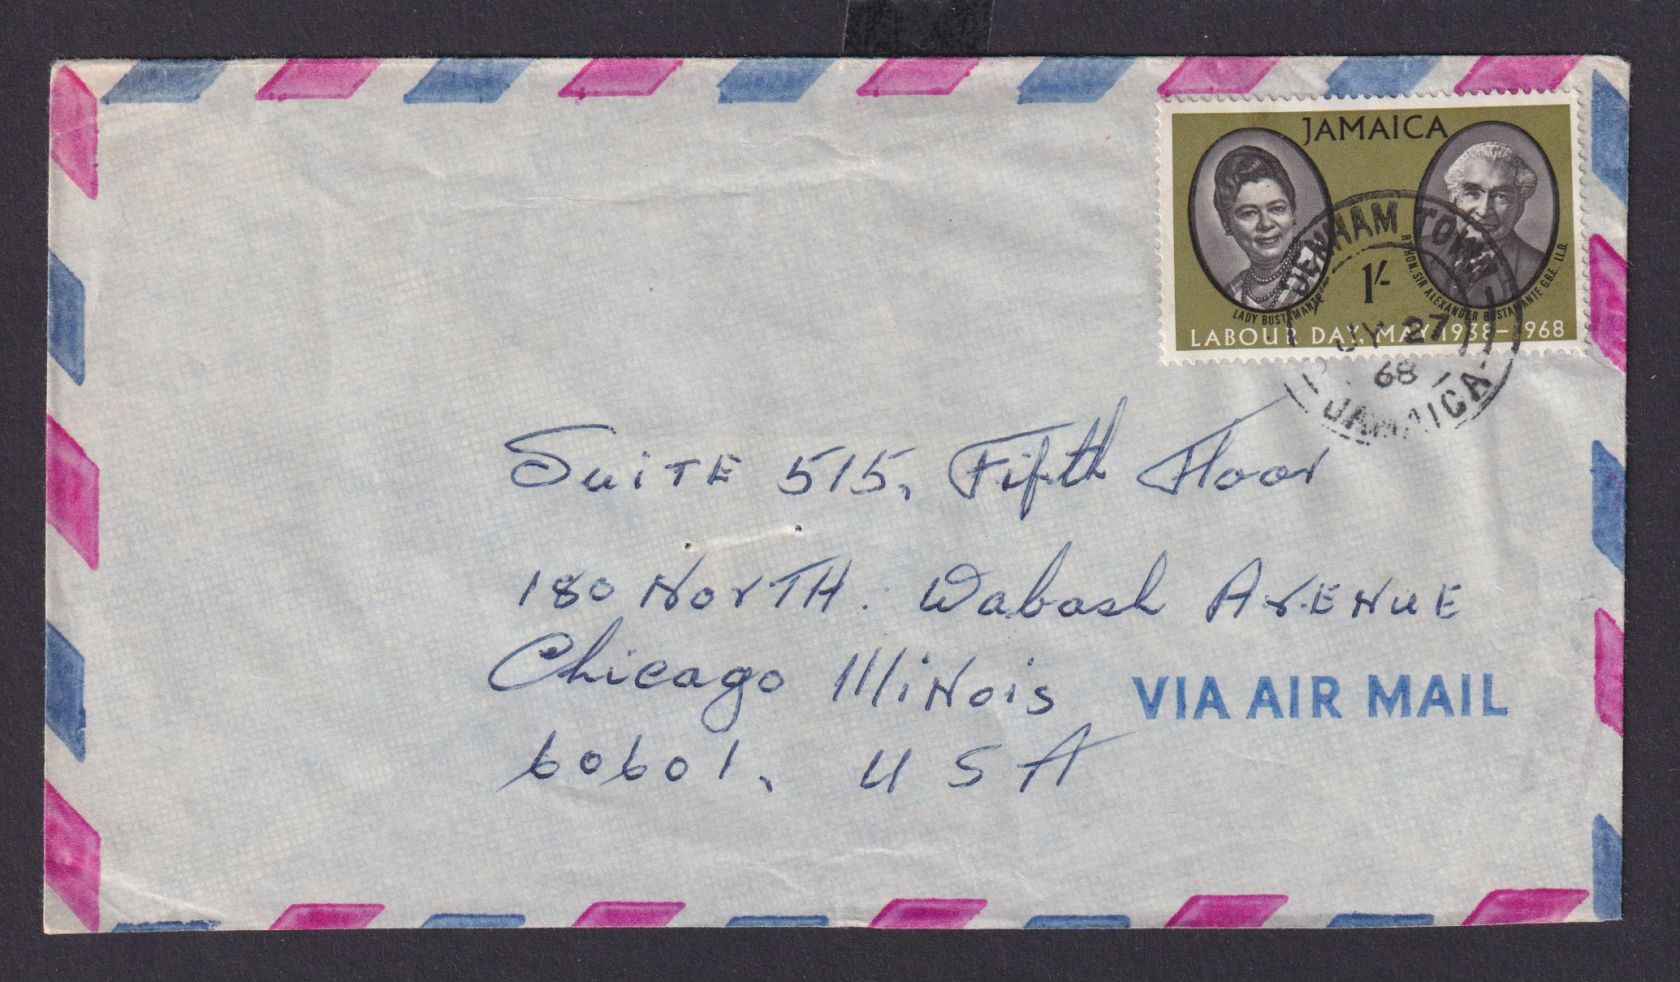 JAMAICA
LADY BUSTAMANTE
1/-
RT. HON. SIR ALEXANDER BUSTAMANTE G.B.E. LL.D.
LABOUR DAY, MAY 1938-1968
DENHAM TOWN
JY 27
68
JAMAICA
SuiTE 515, Fifth Floor
180 NorTH. Wabash AvENuE
Chicago IlliNois
VIA AIR MAIL
60601, U S A